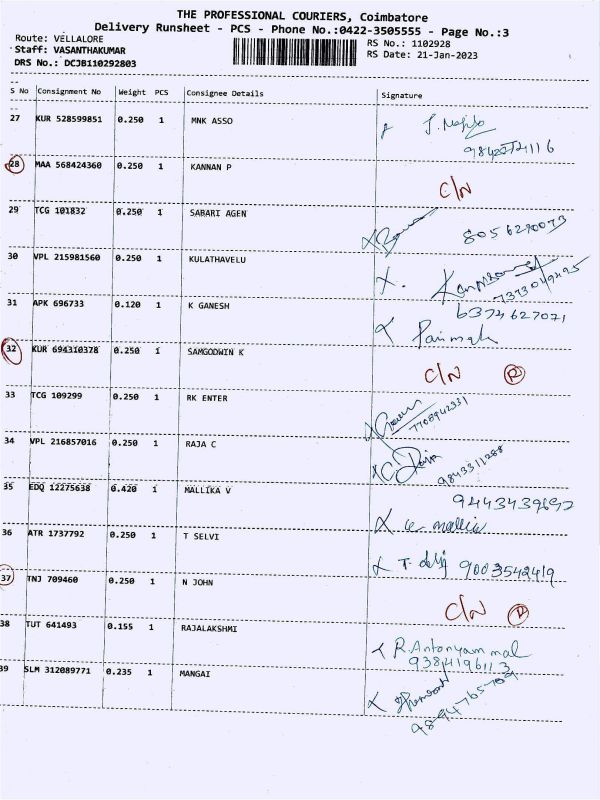 THE PROFESSIONAL COURIERS, Coimbatore
Delivery Runsheet - PCS - Phone No.:0422-3505555 - Page No.:3
Route: VELLALORE
Staff: VASANTHAKUMAR
DRS No.: DCJB110292803
RS No.: 1102928
RS Date: 21-Jan-2023
S No Consignment No Weight PCS Consignee Details Signature
27 KUR 528599851 0.250 1 MNK ASSO
28 MAA 568424360 0.250 1 KANNAN P C/N
29 TCG 101832 0.250 1 SABARI AGEN 8056290073
30 VPL 215981560 0.250 1 KULATHAVELU 7373049495
31 APK 696733 0.120 1 K GANESH 6374627071
Parimala
32 KUR 694310378 0.250 1 SAMGODWIN K C/N R
33 TCG 109299 0.250 1 RK ENTER 7708942331
34 VPL 216857016 0.250 1 RAJA C Raja 9843311288
35 EDQ 12275638 0.420 1 MALLIKA V 9443439692
36 ATR 1737792 0.250 1 T SELVI T. 9003542419
37 TNJ 709460 0.250 1 N JOHN C/N R
38 TUT 641493 0.155 1 RAJALAKSHMI R. Antonyammal
9384196113
39 SLM 312089771 0.235 1 MANGAI 9894765709